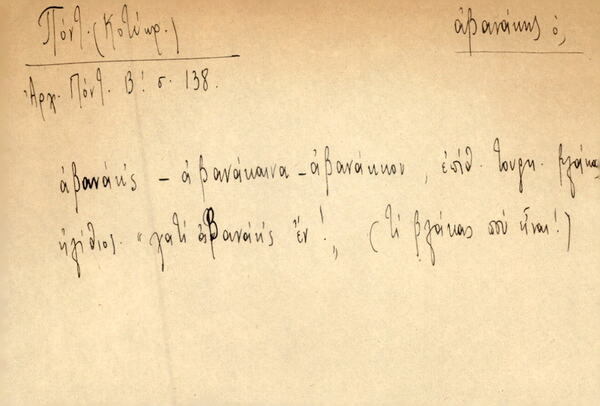 Πόντ. (Κοτύωρ.)
ἀβανάκης ὁ,
Ἀρχ. Πόντ. Β! σ. 138.
ἀβανάκης – ἀβανάκαινα – ἀβανάκικον, ἐπίθ. τουρκ. βλάκας
ἠλίθιος. "γατί ἀβανάκης ἔν!" (τί βλάκας ποὺ εἶναι!)